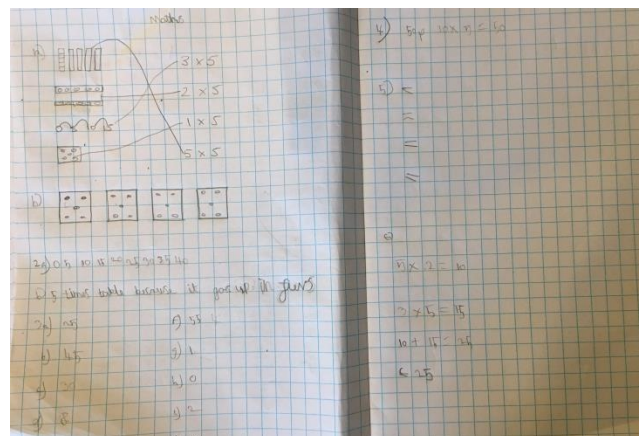 Maths
a)
3 x 5
2 x 5
1 x 5
5 x 5
b)
2a) 0 5 10 15 20 25 30 35 40
b) 5 times table because it goes up in fives
3a) 25
f) 55
b) 45
g) 1
h) 0
i) 2
4)
50p 10 x 5 = 50
5) <
=
=
=
5 x 2 = 10
3 x 5 = 15
10 + 15 = 25
£ 25